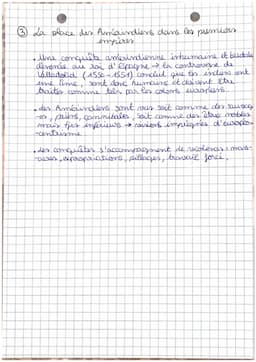 ③ La place des Amérindiens dans les premiers
empires
• Une conquête amérindienne inhumaine et brutale
dénoncée au roi d'Espagne → la controverse de
Valladolid (1550-1551) conclut que les indiens ont
une âme, sont donc humains et doivent être
traités comme tels par les colons européens.
• des Amérindiens sont vus soit comme des sauvag
-es, païens, cannibales, soit comme des êtres nobles
mais inférieurs → visions imprégnées d'europé-
-centrisme.
• des conquêtes s'accompagnent de violences: mas-
-sacres, expropriations, pillages, travail forcé.